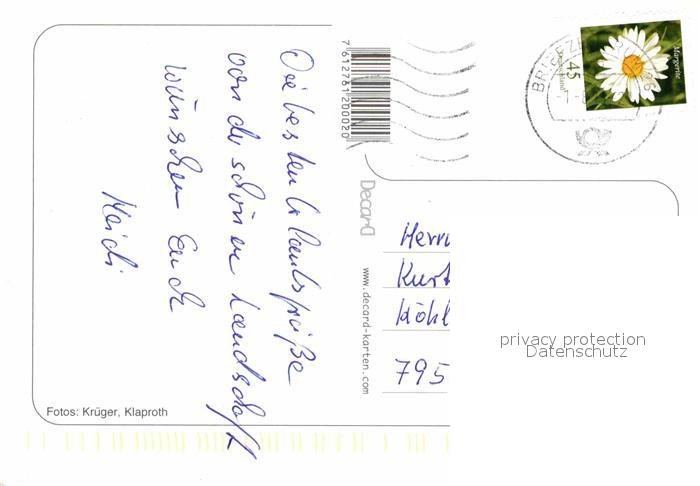 Die besten Urlaubsgrüße
von der schönen Landschaft
wünschen Euch
Heidi
Fotos: Krüger, Klaproth
7612761200020
Decard
www.decard-karten.com
BRIEFZE
Margerite
45
Deutschland
Herrn
Kurt
795
privacy protection
Datenschutz